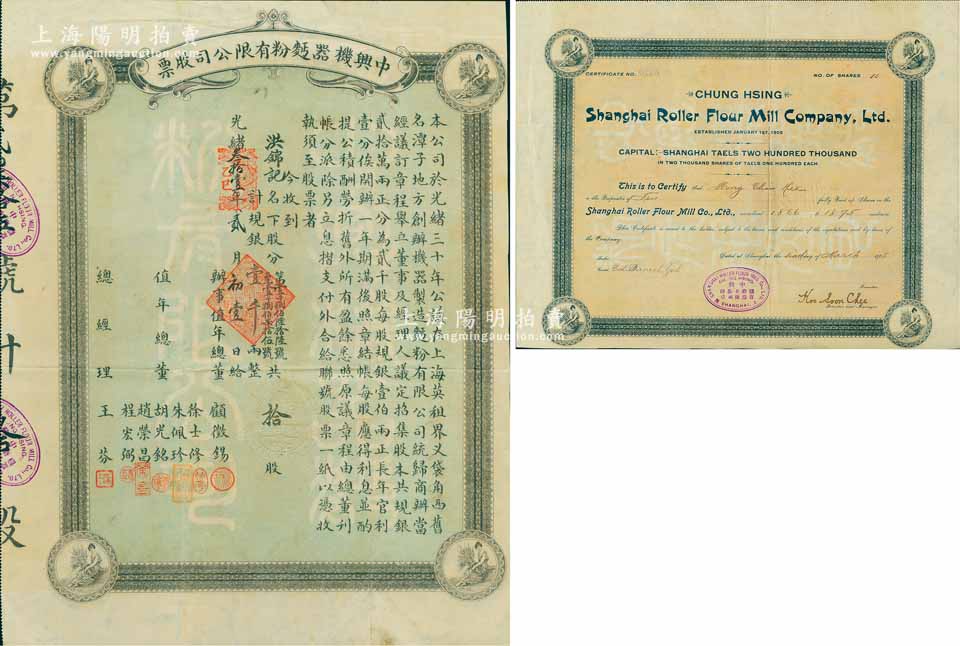 上海陽明拍賣
www.yangmingauction.com
中興機器麪粉有限公司股票
本公司於光緒三十年公議在上海英租界乂袋角西舊
名潭子地方創辦機器製造麪粉有限公司統歸商辦當
經議訂章程舉立董事及經理人議定招集股本共規銀
貳拾萬兩正分為貳千股每股規銀壹伯兩正長年官利
壹分俟開辦一年期滿後照章結帳每股應得利息並酌
提公積酬勞折舊外所有盈餘悉照原議章程由總董利
帳分派除另立息摺支付外合給聯號股票一紙以憑收
執須至股票者
今收到
洪錦記名下股分
共拾股
計規銀壹千兩整
光緒叁拾壹年貳月初壹日給
辦事值年總董
顧徵錫
徐士修
朱佩珍
胡光銘
趙榮昌
值年總董
程宏弼
總經理
王芬
號計拾股
CERTIFICATE NO.
NO. OF SHARES 10
CHUNG HSING
Shanghai Roller Flour Mill Company, Ltd.
ESTABLISHED JANUARY 1ST, 1905
CAPITAL: SHANGHAI TAELS TWO HUNDRED THOUSAND
IN TWO THOUSAND SHARES OF TAELS ONE HUNDRED EACH
This is to Certify that Hung Chin Kee
is the Proprietor of Ten fully Paid up Shares in the
Shanghai Roller Flour Mill Co., Ltd., numbered
This Certificate is issued to the holder, subject to the terms and conditions of the regulations and bye-laws of
the Company.
Dated at Shanghai the day of March 1905
SHANGHAI ROLLER FLOUR MILL CO., LTD.
CHUNG HSING
中興
SHANGHAI
Ko Soon Chee
上海陽明拍賣
www.yangmingauction.com